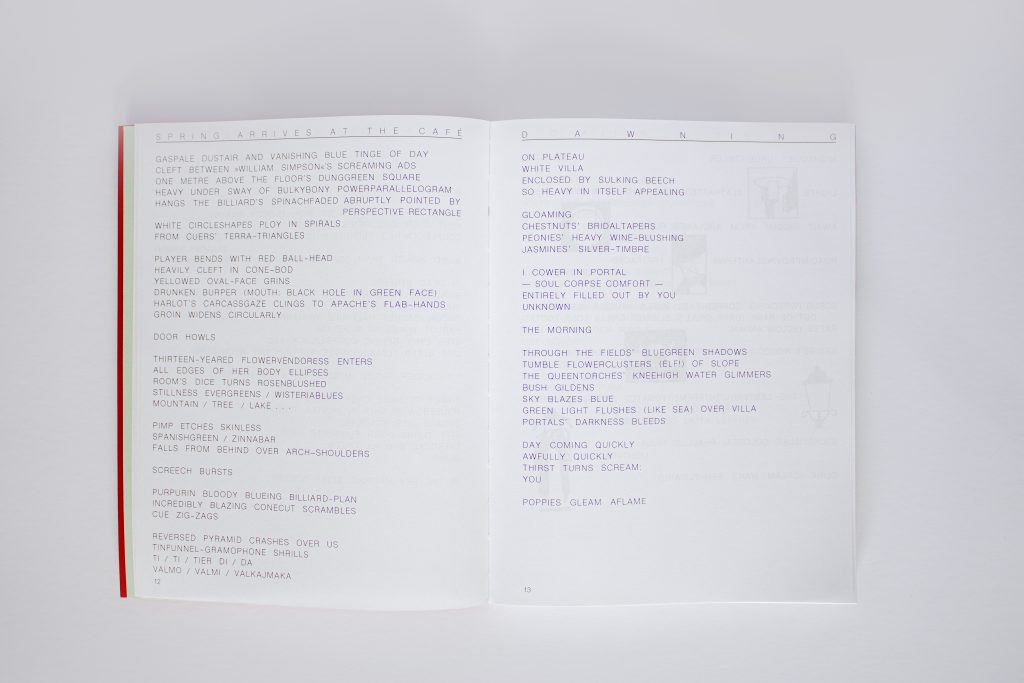 SPRING ARRIVES AT THE CAFÉ
GASPALE DUSTAIR AND VANISHING BLUE TINGE OF DAY
CLEFT BETWEEN »WILLIAM SIMPSON«'S SCREAMING ADS
ONE METRE ABOVE THE FLOOR'S DUNGGREEN SQUARE
HEAVY UNDER SWAY OF BULKYBONY POWERPARALLELOGRAM
HANGS THE BILLIARD'S SPINACHFADED ABRUPTLY POINTED BY
PERSPECTIVE RECTANGLE
WHITE CIRCLESHAPES PLOY IN SPIRALS
FROM CUERS' TERRA-TRIANGLES
PLAYER BENDS WITH RED BALL-HEAD
HEAVILY CLEFT IN CONE-BOD
YELLOWED OVAL-FACE GRINS
DRUNKEN BURPER (MOUTH: BLACK HOLE IN GREEN FACE)
HARLOT'S CARCASSGAZE CLINGS TO APACHE'S FLAB-HANDS
GROIN WIDENS CIRCULARLY
DOOR HOWLS
THIRTEEN-YEARED FLOWERVENDORESS ENTERS
ALL EDGES OF HER BODY ELLIPSES
ROOM'S DICE TURNS ROSENBLUSHED
STILLNESS EVERGREENS / WISTERIABLUES
MOUNTAIN / TREE / LAKE . . .
PIMP ETCHES SKINLESS
SPANISHGREEN / ZINNABAR
FALLS FROM BEHIND OVER ARCH-SHOULDERS
SCREECH BURSTS
PURPURIN BLOODY BLUEING BILLIARD-PLAN
INCREDIBLY BLAZING CONECUT SCRAMBLES
CUE ZIG-ZAGS
REVERSED PYRAMID CRASHES OVER US
TINFUNNEL-GRAMOPHONE SHRILLS
TI / TI / TIER DI / DA
VALMO / VALMI / VALKAJMAKA
12
DAWNING
ON PLATEAU
WHITE VILLA
ENCLOSED BY SULKING BEECH
SO HEAVY IN ITSELF APPEALING
GLOAMING
CHESTNUTS' BRIDALTAPERS
PEONIES' HEAVY WINE-BLUSHING
JASMINES' SILVER-TIMBRE
I COWER IN PORTAL
— SOUL CORPSE COMFORT —
ENTIRELY FILLED OUT BY YOU
UNKNOWN
THE MORNING
THROUGH THE FIELDS' BLUEGREEN SHADOWS
TUMBLE FLOWERCLUSTERS (ELF!) OF SLOPE
THE QUEENTORCHES' KNEEHIGH WATER GLIMMERS
BUSH GILDENS
SKY BLAZES BLUE
GREEN LIGHT FLUSHES (LIKE SEA) OVER VILLA
PORTALS' DARKNESS BLEEDS
DAY COMING QUICKLY
AWFULLY QUICKLY
THIRST TURNS SCREAM:
YOU
POPPIES GLEAM AFLAME
13